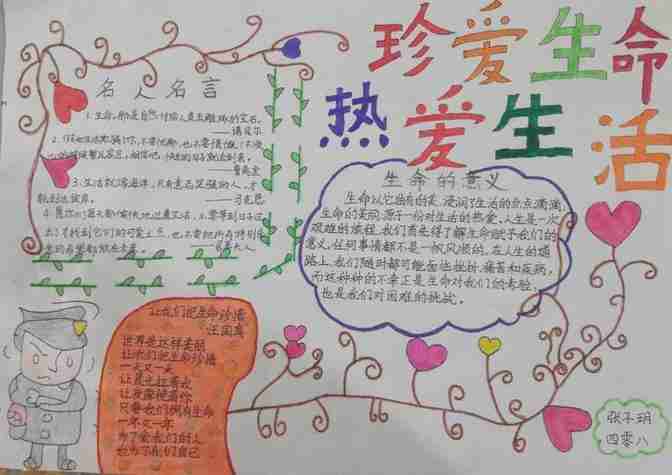 珍爱生命
热爱生活
名人名言
1.生命,那是自然付给人类去雕琢的宝石。
——诺贝尔
2.假如生活欺骗了你,不要忧郁,也不要愤慨!不顺
心的时候暂且容忍,相信吧,快乐的日子就会到来。
3.生活就像海洋,只有意志坚强的人,才
能到达彼岸。
——马克思
生命的意义
生命以它独有的美,浸润了生活的点点滴滴,
生命的美丽源于一份对生活的热爱。人生是一次
艰难的旅程,我们首先得了解生命赋予我们的
意义。任何事情都不是一帆风顺的,在人生的道
路上,我们随时都可能面临挫折,痛苦和疾病,
而这种种的不幸正是生命对我们的考验,
也是我们对困难的挑战。
让我们把生命珍惜
汪国真
世界是这样美丽
让我们把生命珍惜
一天又一天
让晨光拉着我
让夜露挽着你
只要我们拥有生命
一年又一年
为了爱我们的人
也为了我们自己
张子玥
四零八